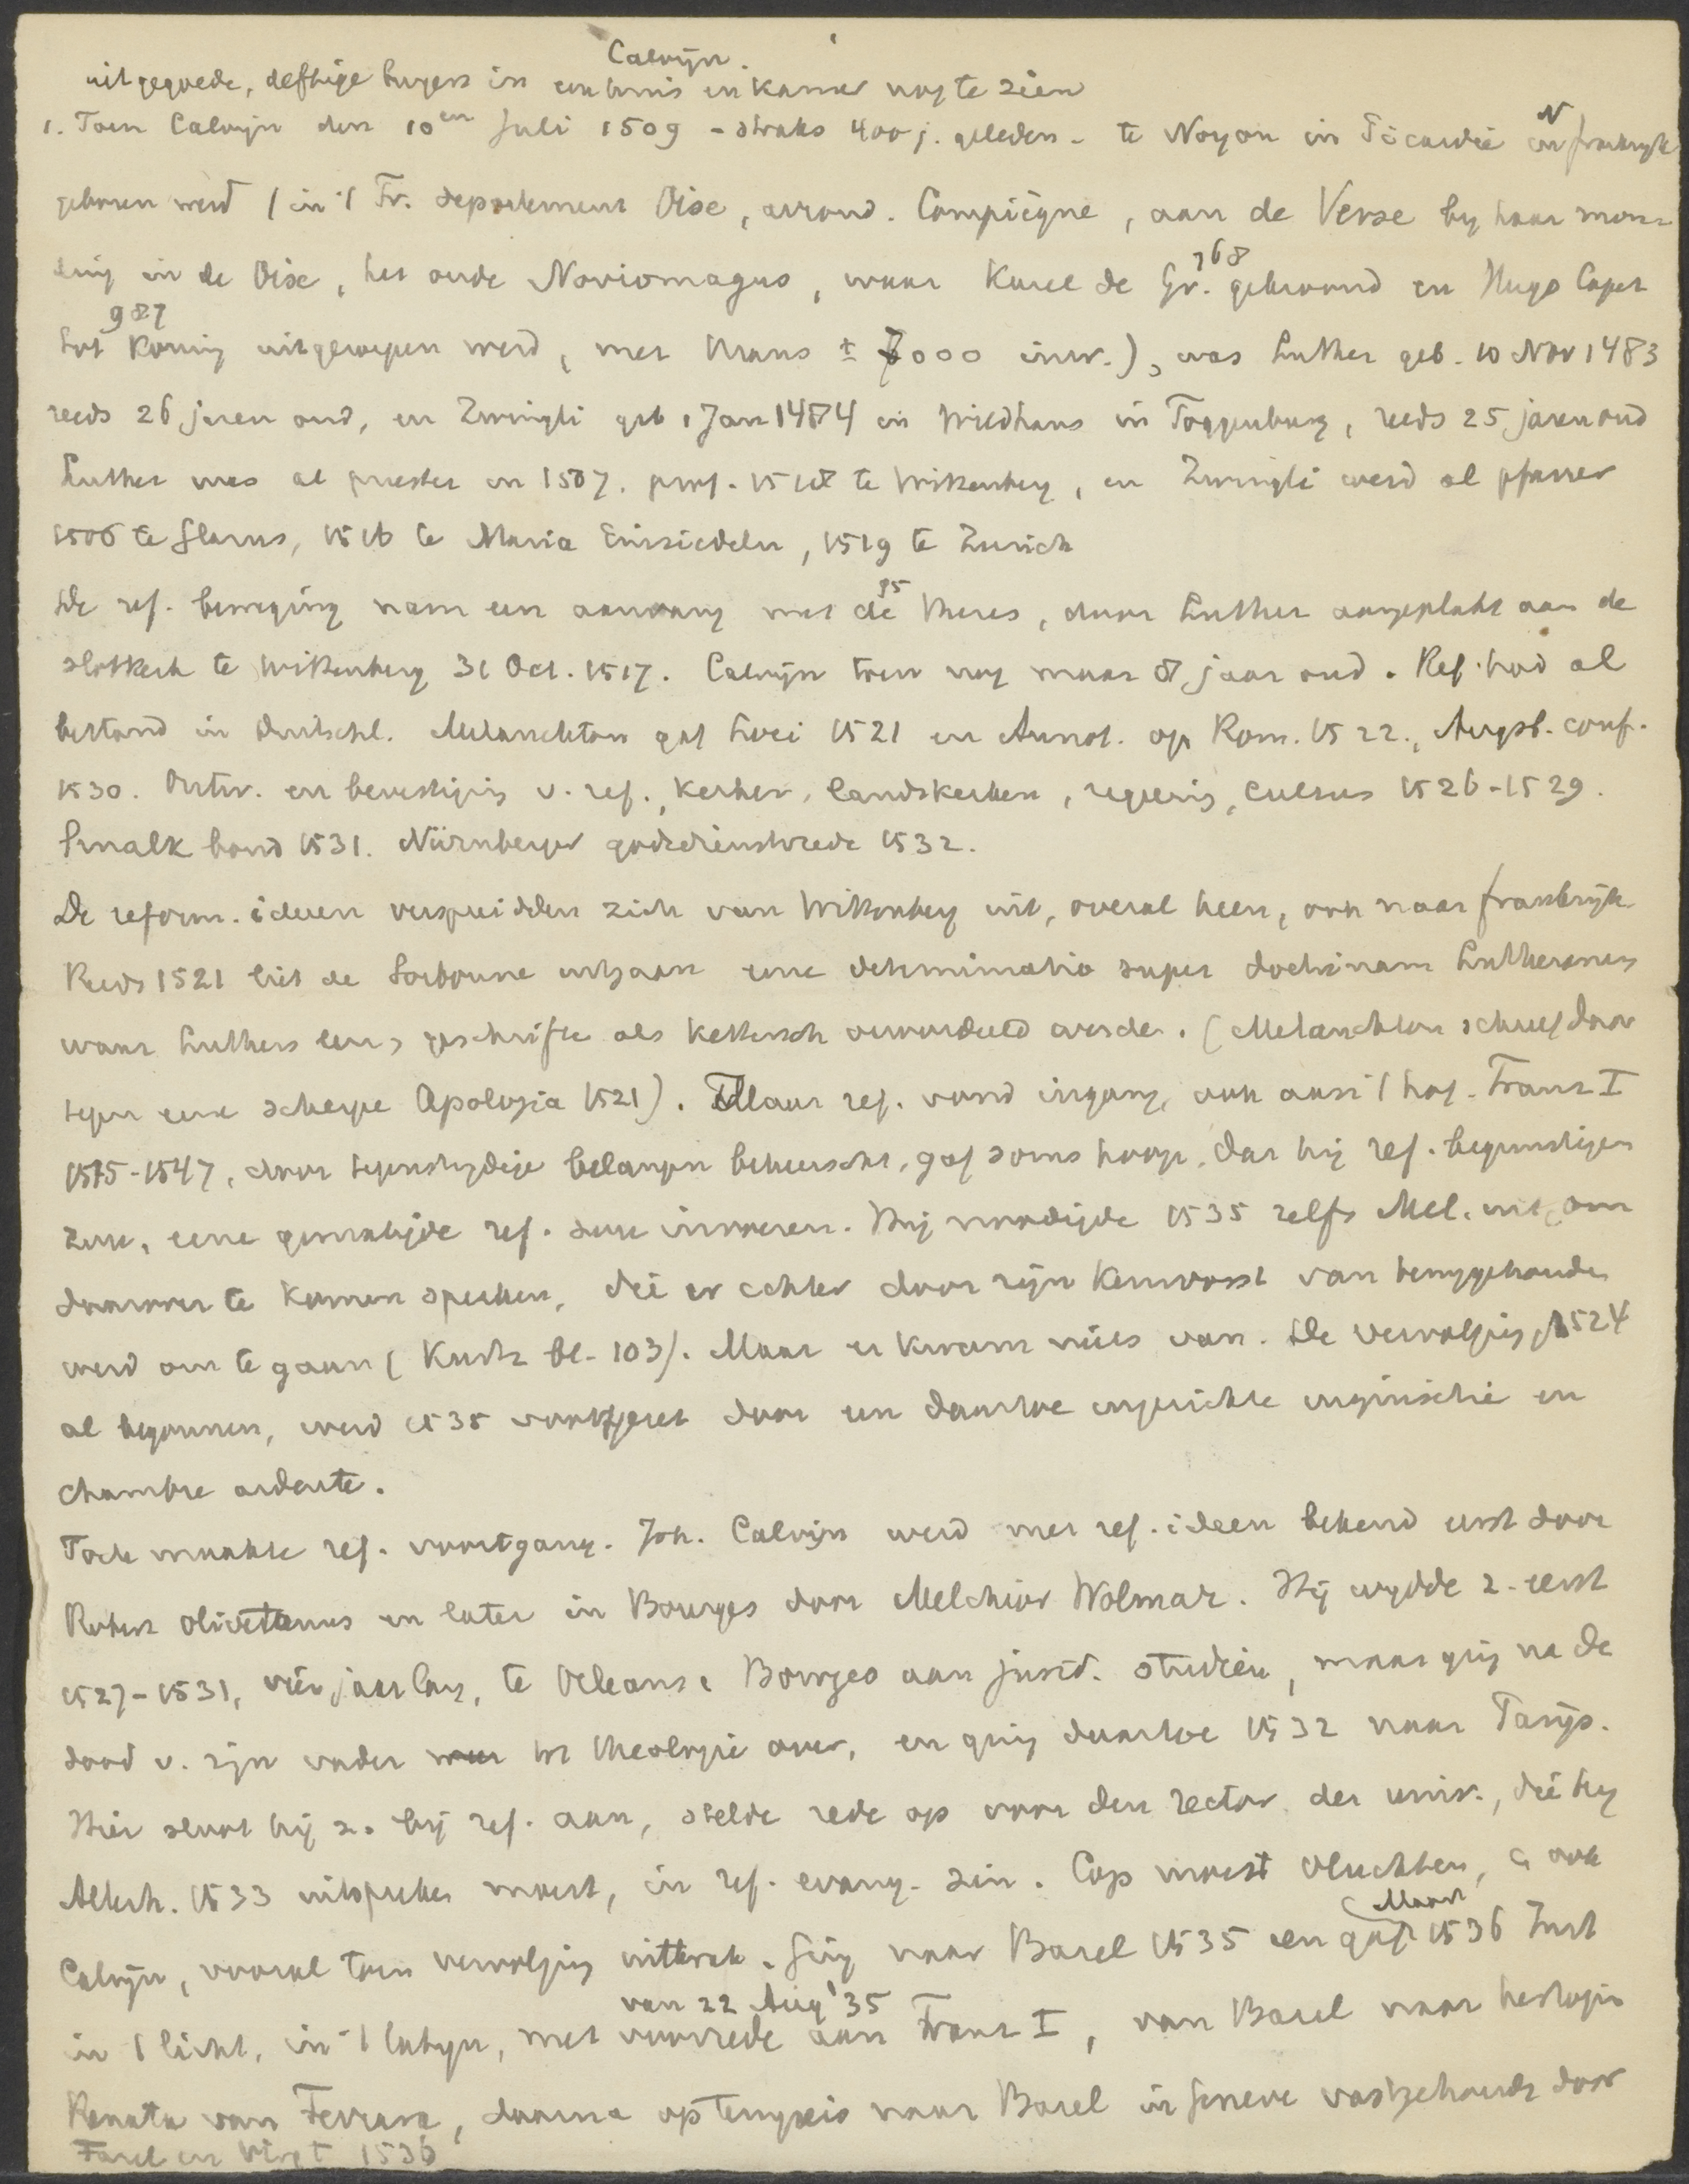 Calvijn.
uit gegoede, deftige burgers in een huis en kamer nog te zien
1. Toen Calvijn den 10en Juli 1509 - straks 400 j. geleden - te Noyon in Picardië in N Frankrijk
geboren werd (in 't Fr. departement Oise, arrond. Compiègne, aan de Verse bij haar mon-
ding in de Oise, het oude Noviomagus, waar Karel de Gr. 768 gekroond en Hugo Capet
987
tot koning uitgeroepen werd, met thans ± 7000 inw.), was Luther geb. 10 Nov 1483
reeds 26 jaren oud, en Zwingli geb 1 Jan 1484 in Wildhaus in Toggenburg, reeds 25 jaren oud
Luther was al priester in 1507. prof. 1508 te Wittenberg, en Zwingli werd al pfarrer
1506 te Glarus, 1516 te Maria Einsiedeln, 1519 te Zurich
De ref. beweging nam een aanvang met de 95 theses, door Luther aangeplakt aan de
slotkerk te Wittenberg 31 Oct. 1517. Calvijn toen nog maar 8 jaar oud. Ref. had al
bestand in Duitschl. Melanchton gaf Loci 1521 en Annot. op Rom. 1522., Augsb. conf.
1530. Ontw. en bevestiging v. ref., kerken, landskerken, regeering, cultus 1526-1529.
Smalk bond 1531. Nürnberger godsdienstvrede 1532.
De reform. ideeen verspreidden zich van Wittenberg uit, overal heen, ook naar Frankrijk
Reeds 1521 liet de Sorbonne uitgaan eene determinatio super doctrinam Lutheranam
waar Luthers leer, geschriften als kettersch veroordeeld werden. (Melanchton schreef daar
tegen eene scherpe Apologia 1521). Maar ref. vond ingang, ook aan 't hof. Frans I
1515-1547, door tegenstrydige belangen beheerscht, gaf soms hoop, dat hij ref. begunstigen
zou, eene gematigde ref. zou invoeren. Hij noodigde 1535 zelfs Mel. uit, om
daarover te komen spreken, die er echter door zijn Keurvorst van teruggehouden
werd om te gaan (Kurtz bl. 103). Maar er kwam niets van. De vervolging, 1524
al begonnen, werd 1535 voortgezet door een daartoe ingerichte inquisitie en
chambre ardente.
Toch maakte ref. voortgang. Joh. Calvijn werd met ref. ideen bekend eerst door
Robert Olivetanus en later in Bourges door Melchior Wolmar. Hij wijdde z. eerst
1527-1531, vier jaar lang, te Orleans & Bourges aan jurid. studiën, maar ging na de
dood v. zijn vader tot theologie over, en ging daartoe 1532 naar Parijs.
Hier sloot hij z. bij ref. aan, stelde rede op voor den rector der univ., die hij
Allerh. 1533 uitspreken moest, in ref. evang. zin. Cop moest vluchten, & ook
Calvijn, vooral toen vervolging uitbrak. Ging naar Basel 1535 en gaf Maart 1536 Inst
in 't licht, in 't latijn, met voorrede van 22 Aug '35 aan Frans I, van Basel naar hertogin
Renata van Ferrara, daarna op terugreis naar Basel in Geneve vastgehouden door
Farel en Viret 1536